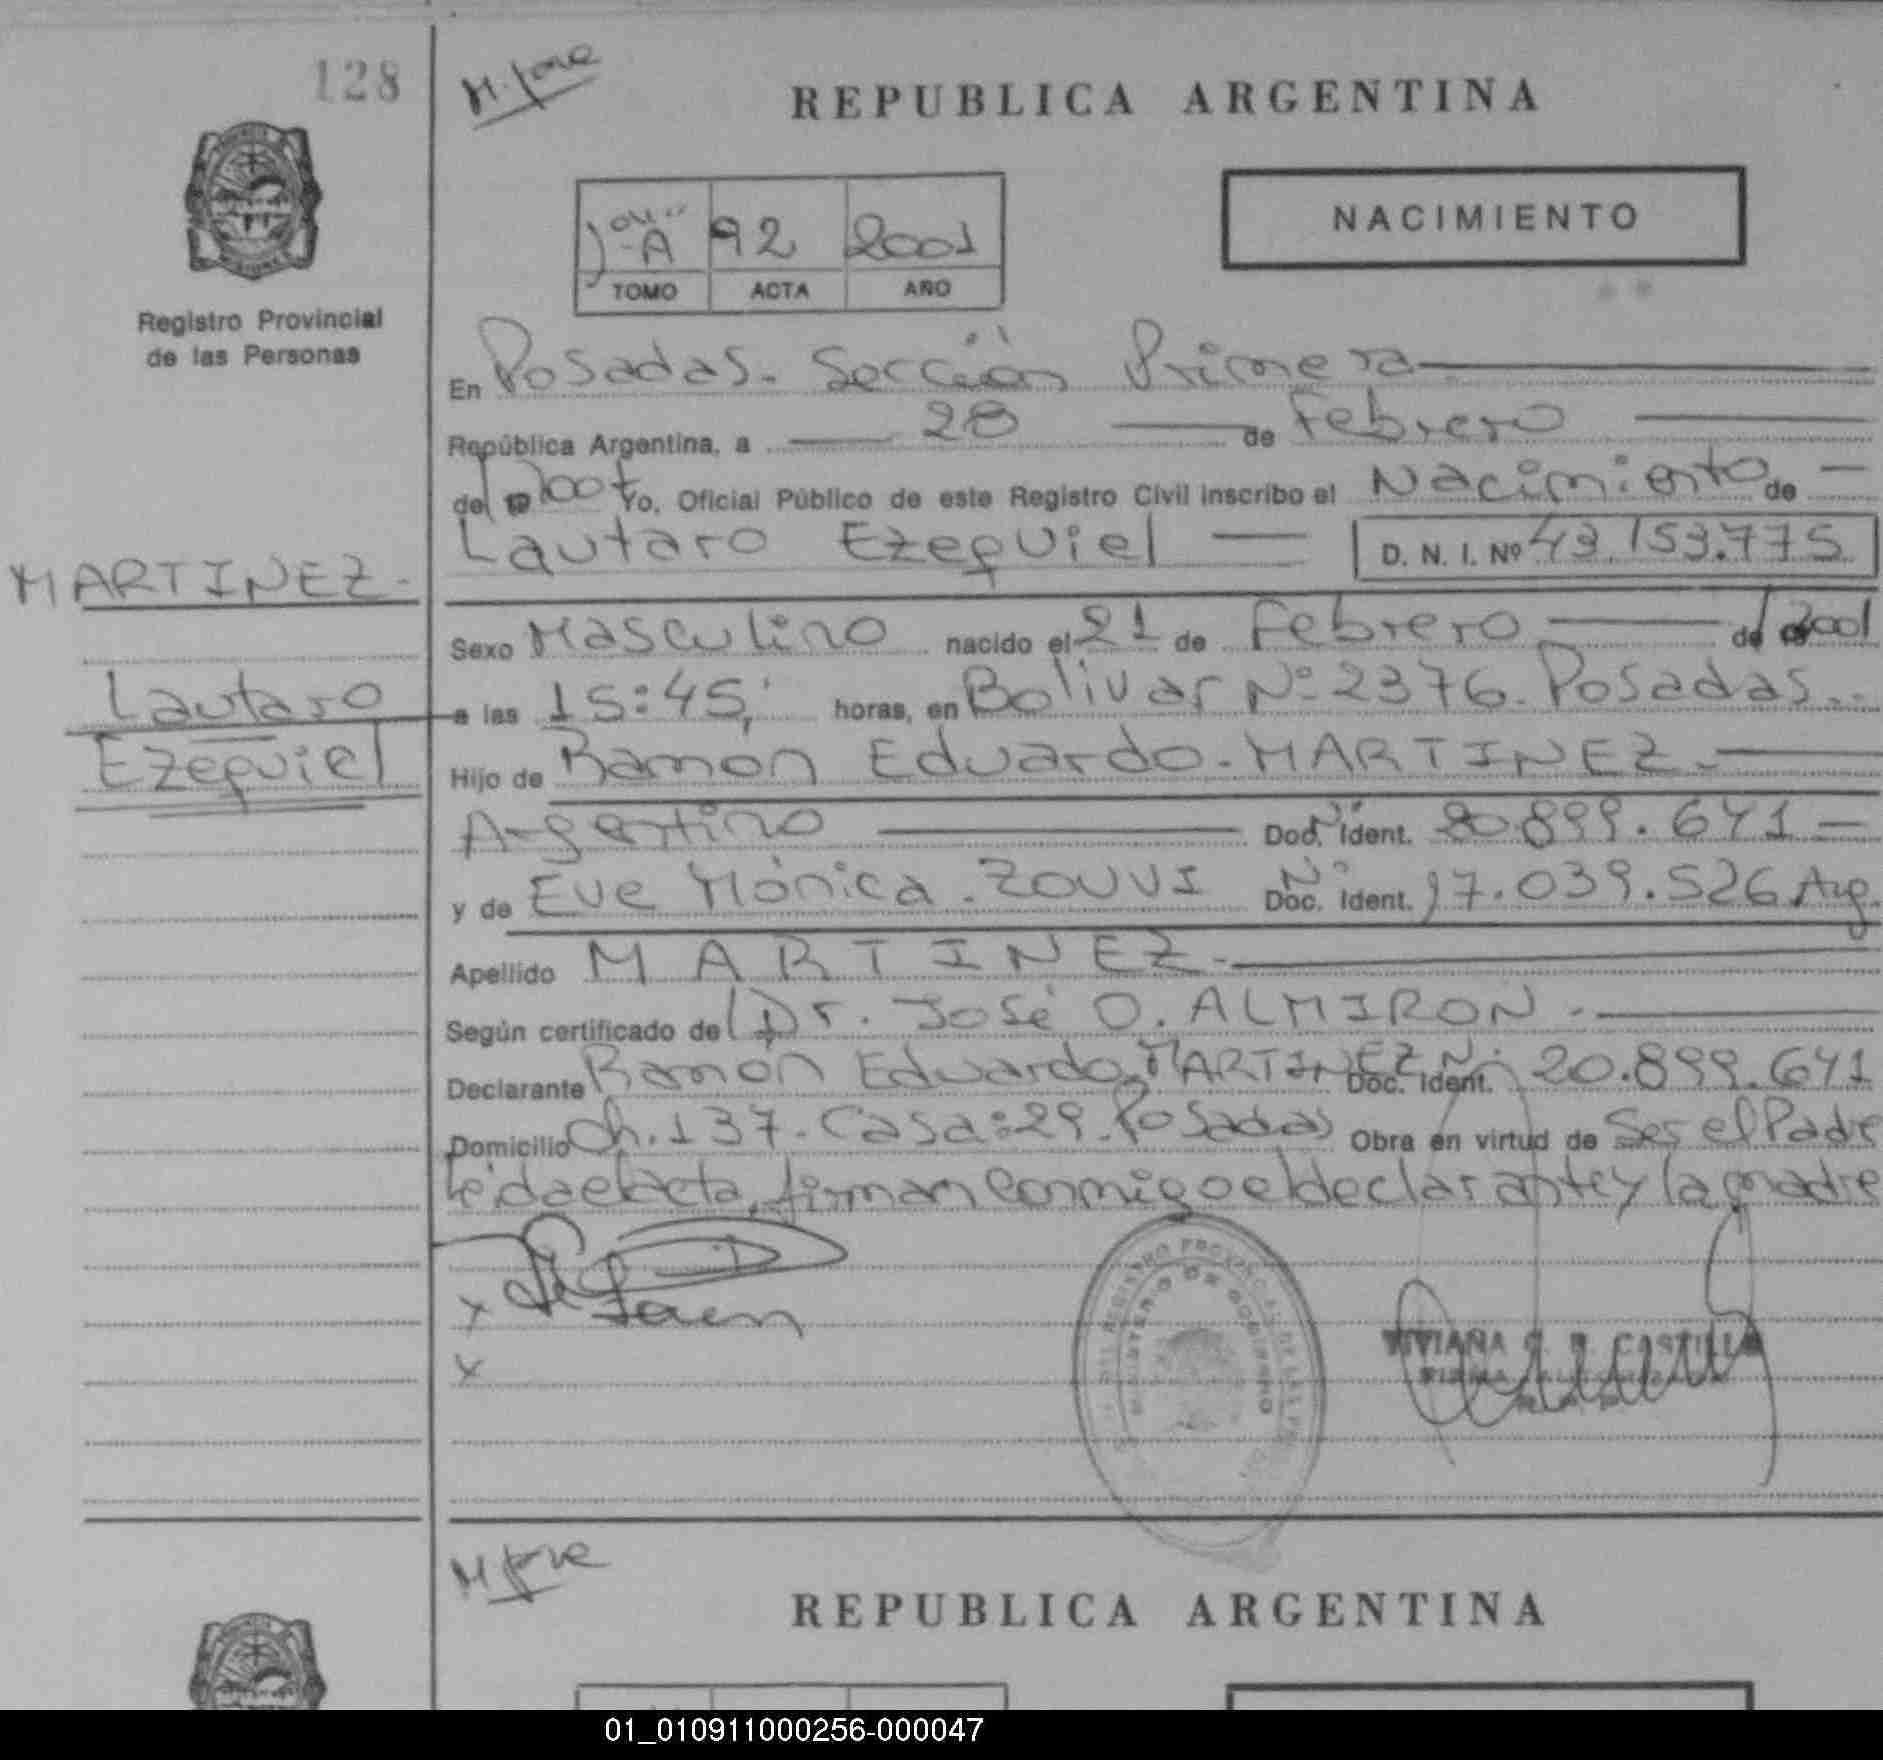 128
M. Jose
REPUBLICA ARGENTINA
NACIMIENTO
-A 92 2001
TOMO ACTA AÑO
Registro Provincial
de las Personas
En Posadas. Sección Primera
República Argentina, a 28 de Febrero
de 2001 Yo, Oficial Público de este Registro Civil inscribo el Nacimiento de
Lautaro Ezequiel D. N. I. Nº 43.153.775
MARTINEZ.
Lautaro
Ezequiel
Sexo Masculino nacido el 21 de Febrero de 2001
a las 15:45, horas, en Bolivar Nº 2376. Posadas.
Hijo de Ramón Eduardo. MARTINEZ.
Argentino Doc. Ident. Nº 20.899.641
y de Eve Mónica. ZOUVI Doc. Ident. Nº 17.039.526 Arg.
Apellido MARTINEZ.
Según certificado de Dr. José O. ALMIRON.
Declarante Ramón Eduardo MARTINEZ Doc. Ident. Nº 20.899.641
Domicilio Ch. 137. Casa: 29. Posadas Obra en virtud de Ser el Padre
Leída el acta, firman conmigo el declarante y la madre
x
x
REGISTRO PROVINCIAL DE LAS
MINISTERIO DE GOBIERNO
VIVIANA CASTILLO
REPUBLICA ARGENTINA
01_010911000256-000047